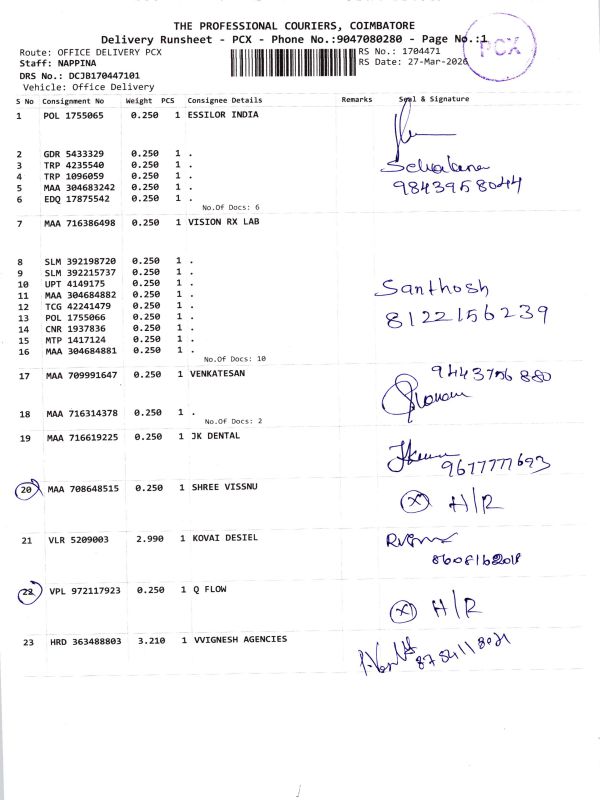 THE PROFESSIONAL COURIERS, COIMBATORE
Delivery Runsheet - PCX - Phone No.:9047080280 - Page No.:1
PCX
Route: OFFICE DELIVERY PCX
RS No.: 1704471
Staff: NAPPINA
RS Date: 27-Mar-2026
DRS No.: DCJB170447101
Vehicle: Office Delivery
S No Consignment No Weight PCS Consignee Details Remarks Seal & Signature
1 POL 1755065 0.250 1 ESSILOR INDIA
2 GDR 5433329 0.250 1 .
3 TRP 4235540 0.250 1 .
4 TRP 1096059 0.250 1 .
5 MAA 304683242 0.250 1 .
9843958044
6 EDQ 17875542 0.250 1 .
No.Of Docs: 6
7 MAA 716386498 0.250 1 VISION RX LAB
8 SLM 392198720 0.250 1 .
9 SLM 392215737 0.250 1 .
10 UPT 4149175 0.250 1 .
Santhosh
11 MAA 304684882 0.250 1 .
12 TCG 42241479 0.250 1 .
13 POL 1755066 0.250 1 .
8122156239
14 CNR 1937836 0.250 1 .
15 MTP 1417124 0.250 1 .
16 MAA 304684881 0.250 1 .
No.Of Docs: 10
17 MAA 709991647 0.250 1 VENKATESAN
9443756880
18 MAA 716314378 0.250 1 .
No.Of Docs: 2
19 MAA 716619225 0.250 1 JK DENTAL
9677777693
20 MAA 708648515 0.250 1 SHREE VISSNU
X H/R
21 VLR 5209003 2.990 1 KOVAI DESIEL
22 VPL 972117923 0.250 1 Q FLOW
X H/R
23 HRD 363488803 3.210 1 VVIGNESH AGENCIES